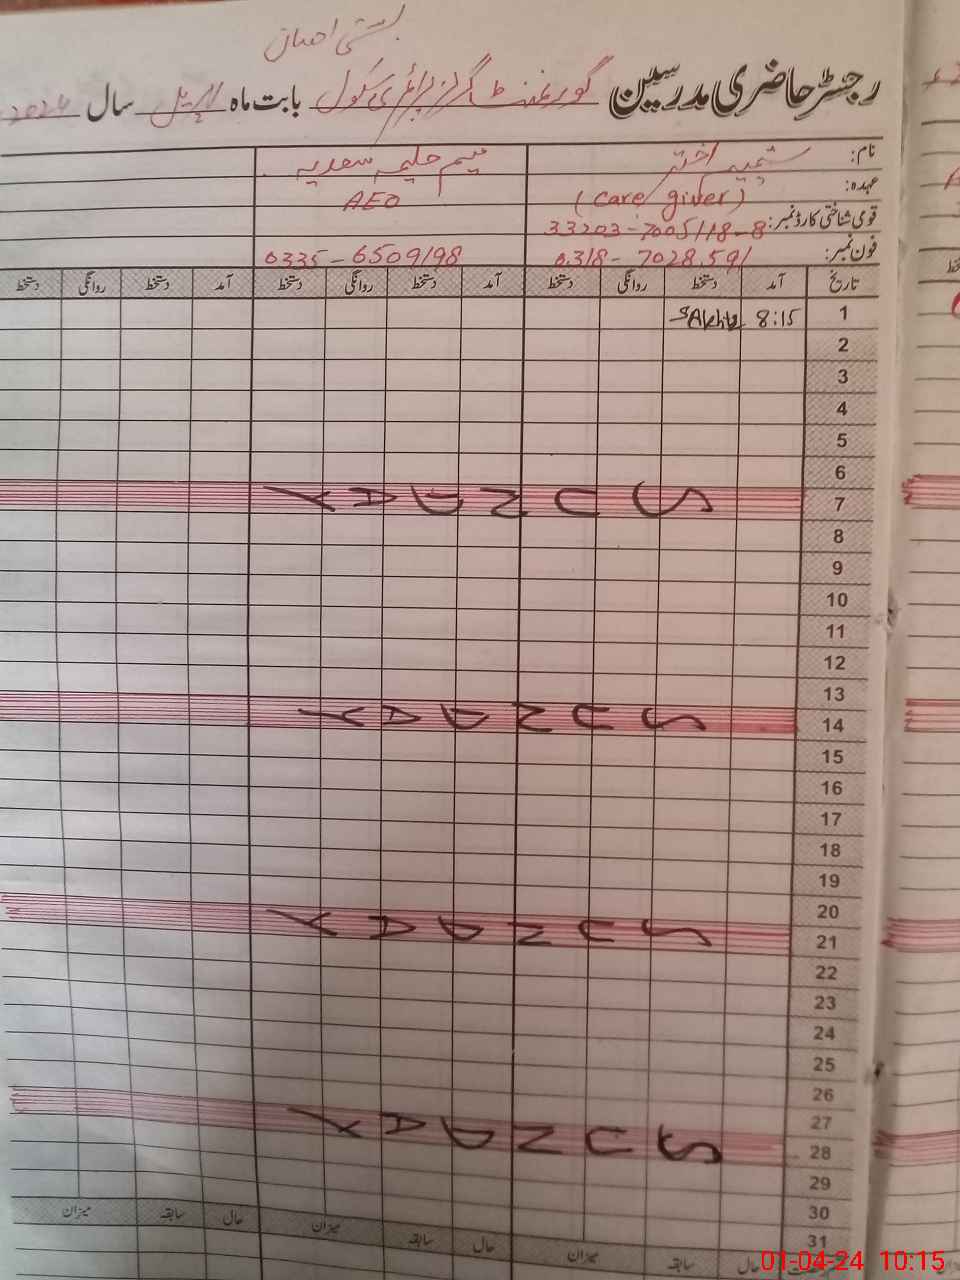 بستی احسان
رجسٹر حاضری مدرسین گورنمنٹ گرلز پرائمری سکول بابت ماہ اپریل سال 2024
نام: شمیم اختر میم حلیمہ سعدیہ
عہدہ: (Care giver) AEO
قومی شناختی کارڈ نمبر: 33203-7005118-8
فون نمبر: 0318-7028591 0335-6509198
تاریخ آمد دستخط روانگی دستخط آمد دستخط روانگی دستخط آمد دستخط روانگی دستخط
1 8:15 SAkhtr
2
3
4
5
6
7 SUNDAY
8
9
10
11
12
13
14 SUNDAY
15
16
17
18
19
20
21 SUNDAY
22
23
24
25
26
27
28 SUNDAY
29
30
31
حال سابقہ میزان حال سابقہ میزان حال سابقہ میزان
01-04-24 10:15